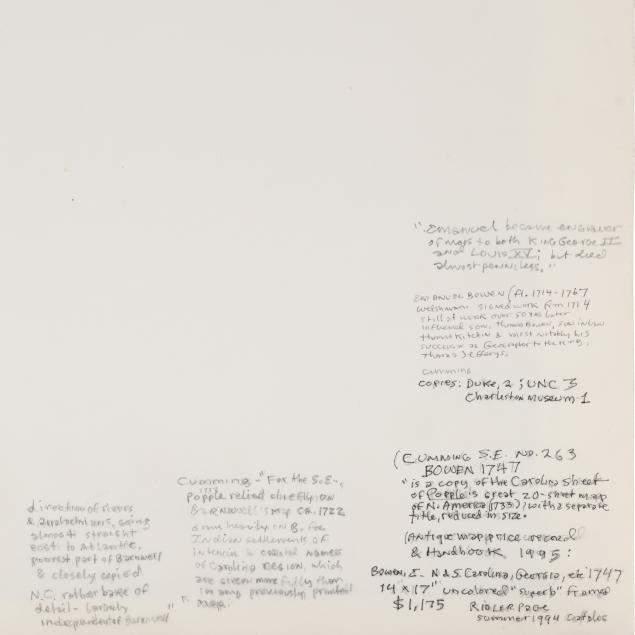 "Emanuel became engraver
of maps to both King George II
and Louis XV; but died
almost penniless."
EMANUEL BOWEN (fl. 1714-1767
Welshman signed work from 1714
still at work over 50 yrs later
influenced son, Thomas Bowen, son in law
Thomas Kitchin & most notably his
successor as Geographer to the King,
Thomas Jefferys.
Cumming
copies: Duke, 2; UNC 3
Charleston Museum-1
(CUMMING S.E. NO. 263
BOWEN 1747
"is a copy of the Carolina sheet
of Popple's great 20-sheet map
of N. America (1733), with a separate
title, reduced in size.
(Antique map price record
& Handbook 1995:
Bowen, E. N & S. Carolina, Georgia, etc 1747
14" x 17" uncolored "superb" framed
$1,175 RIDLER PAGE
summer 1994
Cumming - "For the S.E.,
1733
Popple relied chiefly on
BARNWELL'S map ca. 1722
drew heavily on B. for
Indian settlements of
interior & coastal names
of Carolina region, which
are given more fully than
in any previously printed
map.
direction of rivers
& Appalachians, going
almost straight
east to Atlantic,
poorest part of Barnwell
& closely copied
N.C. rather bare of
detail - largely
independent of Barnwell"